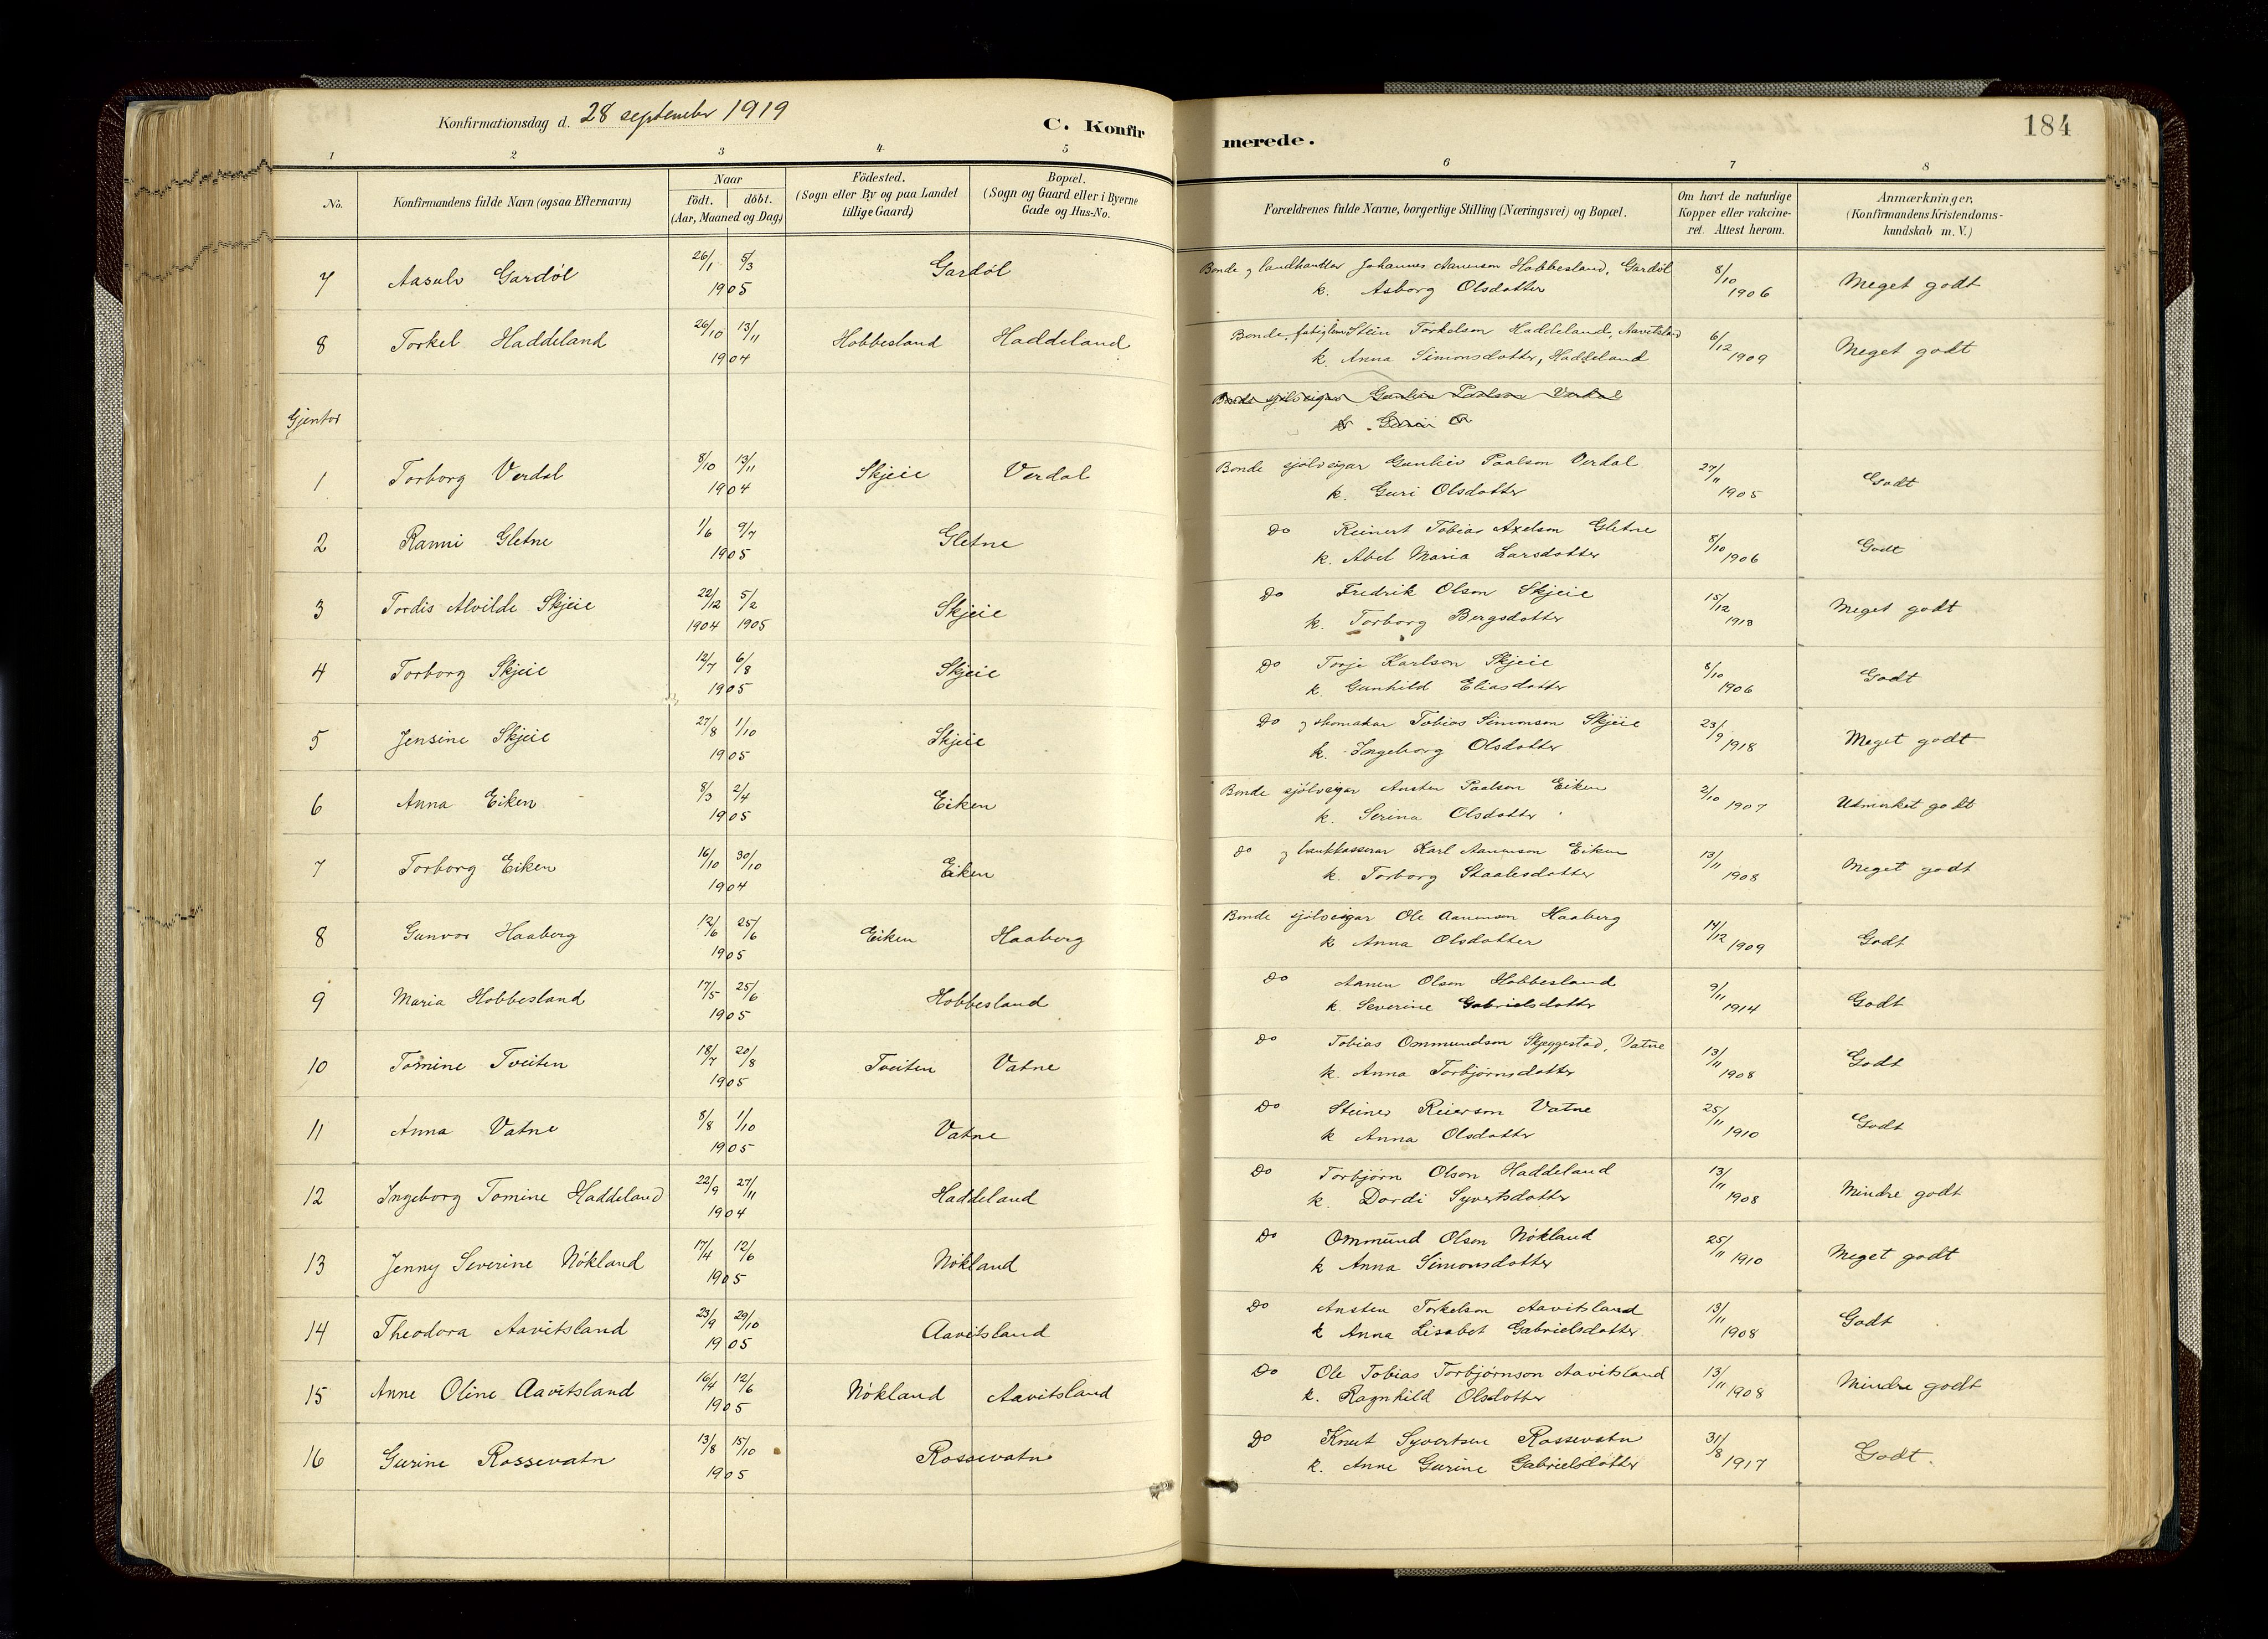 Konfirmationsdag d. 28 september 1919
C. Konfirmerede.
184
1 2 3 4 5 6 7 8
No.
Konfirmandens fulde Navn (ogsaa Efternavn)
Naar
födt. döbt.
(Aar, Maaned og Dag)
Födested.
(Sogn eller By og paa Landet
tillige Gaard)
Bopæl.
(Sogn og Gaard eller i Byerne
Gade og Hus-No.
Forældrenes fulde Navne, borgerlige Stilling (Næringsvei) og Bopæl.
Om havt de naturlige
Kopper eller vakcine-
ret. Attest herom.
Anmærkninger.
(Konfirmandens Kristendoms-
kundskab m. V.)
7 Aasulv Gardöl 26/1 5/3 1905 Gardöl
Bonde og landhandlar Johannes Aanenson Hobbesland, Gardöl
k. Asborg Olsdotter 8/10 1906 Meget godt
8 Torkel Haddeland 26/10 13/11 1904 Hobbesland Haddeland
Bonde, Stein Torkelson Haddeland, Aavitsland
k. Anna Simonsdotter, Haddeland 6/12 1909 Meget godt
Gjentor
Bonde sjölveigar Gunleiv Paalson Verdal
k. Guri O
1 Torborg Verdal 8/10 13/11 1904 Skjeie Verdal
Bonde sjölveigar Gunleiv Paalson Verdal
k. Guri Olsdotter 27/11 1905 Godt
2 Ranni Gletne 1/6 9/7 1905 Gletne
Do Reinert Tobias Axelson Gletne
k. Abel Maria Larsdotter 8/10 1906 Godt
3 Tordis Alvilde Skjeie 22/12 1904 5/2 1905 Skjeie
Do Fredrik Olson Skjeie
k. Torborg Bergsdotter 15/12 1918 Meget godt
4 Torborg Skjeie 12/7 6/8 1905 Skjeie
Do Torje Karlson Skjeie
k. Gunhild Eliasdotter 8/10 1906 Godt
5 Jensine Skjeie 27/8 1/10 1905 Skjeie
Do og skomakar Tobias Simonson Skjeie
k. Ingeborg Olsdotter 23/9 1918 Meget godt
6 Anna Eiken 8/3 2/4 1905 Eiken
Bonde sjölveigar Ansten Paalson Eiken
k. Serina Olsdotter 2/10 1907 Udmerket godt
7 Torborg Eiken 16/10 30/10 1904 Eiken
Do og bankkasserar Karl Aanenson Eiken
k. Torborg Staalesdotter 13/11 1908 Meget godt
8 Gunvor Haaberg 12/6 25/6 1905 Eiken Haaberg
Bonde sjölveigar Ole Aanenson Haaberg
k Anna Olsdotter 14/12 1909 Godt
9 Maria Hobbesland 17/5 25/6 1905 Hobbesland
Do Aanen Olson Hobbesland
k. Severine Gabrielsdotter 9/11 1914 Godt
10 Tomine Tveiten 18/7 20/8 1905 Tveiten Vatne
Do Tobias Ommundson Skjeggestad, Vatne
k. Anna Torbjörnsdotter 13/11 1908 Godt
11 Anna Vatne 8/8 1/10 1905 Vatne
Do Steiner Reierson Vatne
k Anna Olsdotter 25/11 1910 Godt
12 Ingeborg Tomine Haddeland 22/9 27/11 1904 Haddeland
Do Torbjörn Olson Haddeland
k. Dordi Syvertsdotter 13/11 1908 Mindre godt
13 Jenny Severine Nökland 17/4 12/6 1905 Nökland
Do Ommund Olson Nökland
k Anna Simonsdotter 25/11 1910 Meget godt
14 Theodora Aavitsland 23/9 29/10 1905 Aavitsland
Do Ansten Torkelson Aavitsland
k Anna Lisabet Gabrielsdotter 13/11 1908 Godt
15 Anne Oline Aavitsland 16/4 12/6 1905 Nökland Aavitsland
Do Ole Tobias Torbjörnson Aavitsland
k. Ragnhild Olsdotter 13/11 1908 Mindre godt
16 Gurine Rossevatn 13/8 15/10 1905 Rossevatn
Do Knut Syvertsen Rossevatn
k. Anne Gurine Gabrielsdotter 31/8 1917 Godt.